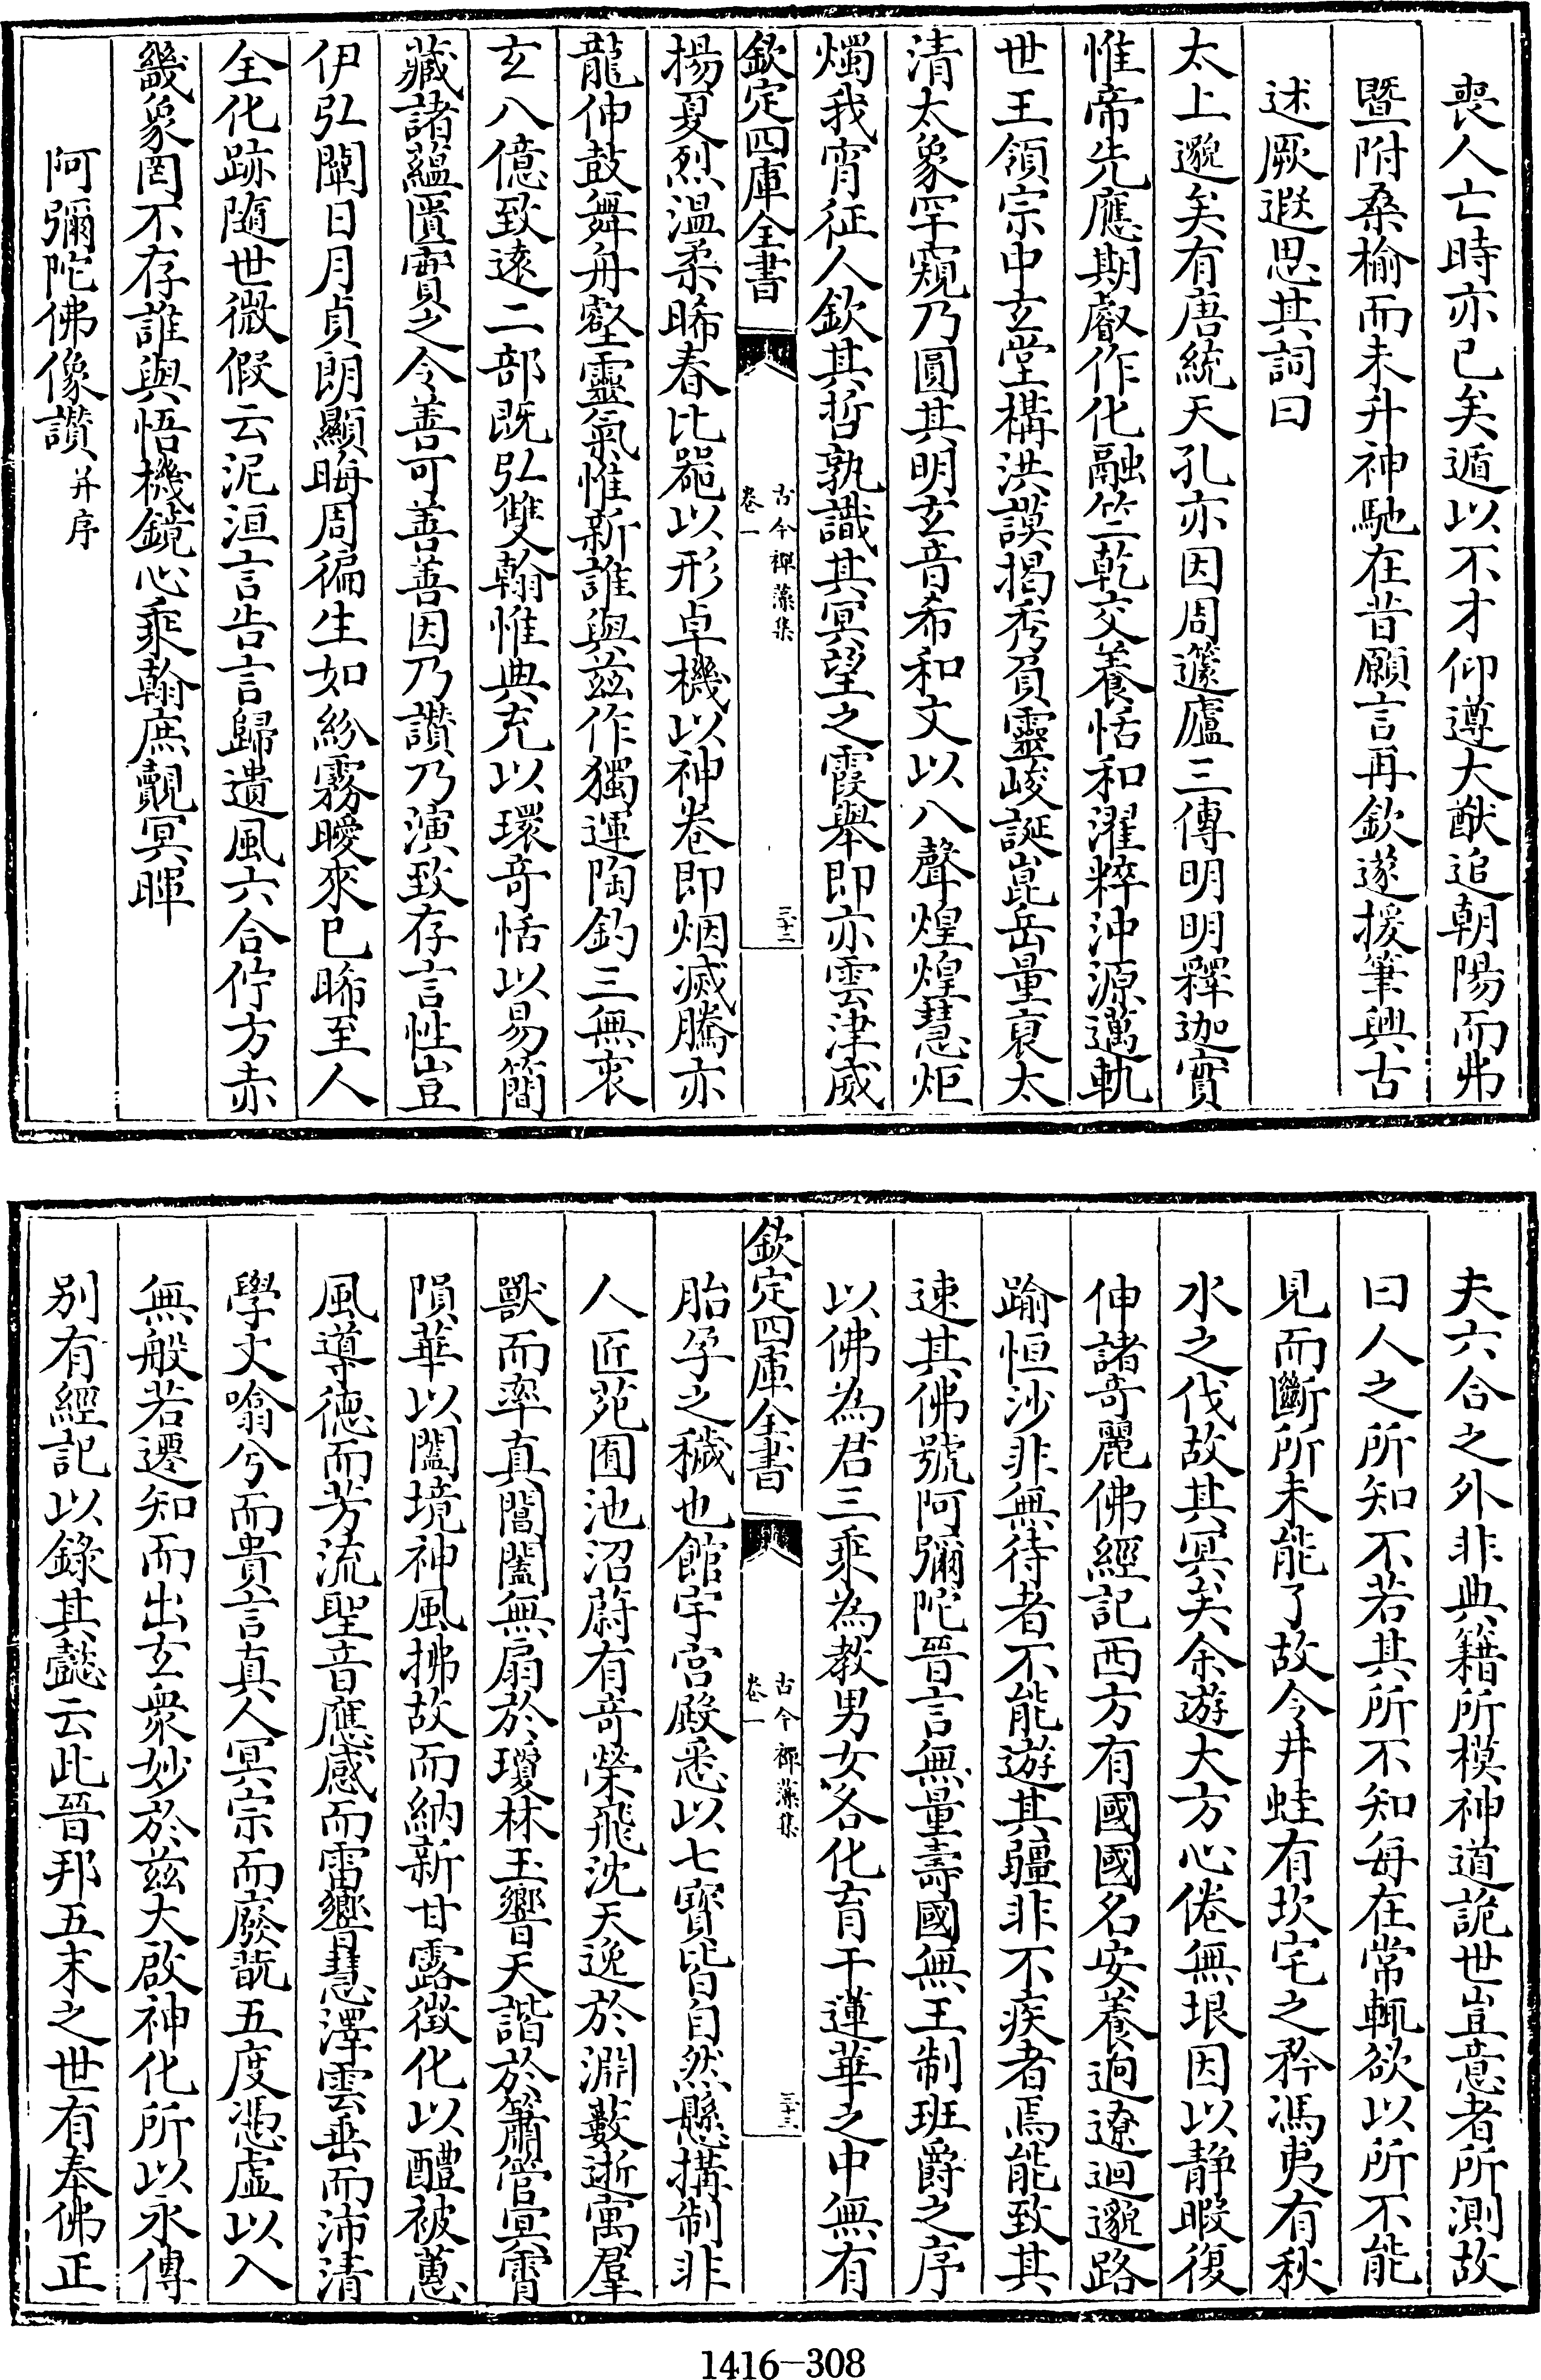 喪人亡時亦已矣遁以不才仰遵大猷追朝陽而弗
暨附桑榆而未升神馳在昔願言再欽遂援筆興古
述厥遐思其詞曰
太上邈矣有唐統天孔亦因周蘧廬三傳明明釋迦實
惟帝先應期叡作化融竺乾交養恬和濯粹沖源邁軌
世王領宗中玄堂構洪謨揭秀負靈峻誕崑岳量裒太
清太象罕窺乃圓其明玄音希和文以八聲煌煌慧炬
燭我宵征人欽其哲孰識其冥望之霞舉即亦雲津威
欽定四庫全書
古今禪藻集
卷一
三十二
揚夏烈溫柔晞春比器以形卓機以神卷即烟滅騰亦
龍伸鼓舞舟壑靈氣惟新誰與茲作獨運陶鈞三無衷
玄八億致遠二部既弘雙翰惟典充以環奇恬以易簡
藏諸蘊匱實之令善可善善因乃讚乃演致存言性豈
伊弘闡日月貞朗顯晦周徧生如紛霧曖來已晞至人
全化跡隨世微假云泥洹言告言歸遺風六合佇方赤
畿象罔不存誰與悟機鏡心乘翰庶覿冥暉
阿彌陀佛像讚并序
夫六合之外非典籍所模神道詭世豈意者所測故
曰人之所知不若其所不知每在常輒欲以所不能
見而斷所未能了故令井蛙有坎宅之矜馮夷有秋
水之伐故其冥矣余遊大方心倦無垠因以静暇復
伸諸奇麗佛經記西方有國國名安養迥遼迴邈路
踰恒沙非無待者不能遊其疆非不疾者焉能致其
速其佛號阿彌陀晉言無量壽國無王制班爵之序
以佛為君三乘為教男女各化育于蓮華之中無有
欽定四庫全書
古今禪藻集
卷一
三十三
胎孕之穢也館宇宮殿悉以七寶皆自然懸搆制非
人匠苑囿池沼蔚有竒榮飛沈天逸於淵藪逝寓羣
獸而率真閶闔無扇於瓊林玉響天諧於簫管冥霄
隕華以闔境神風拂故而納新甘露徵化以醴被蕙
風導徳而芳流聖音應感而雷響慧澤雲垂而沛清
學文噏兮而貴言真人冥宗而廢翫五度憑虛以入
無般若遷知而出玄衆妙於茲大啟神化所以永傳
别有經記以錄其懿云此晉邦五末之世有奉佛正
1416—308